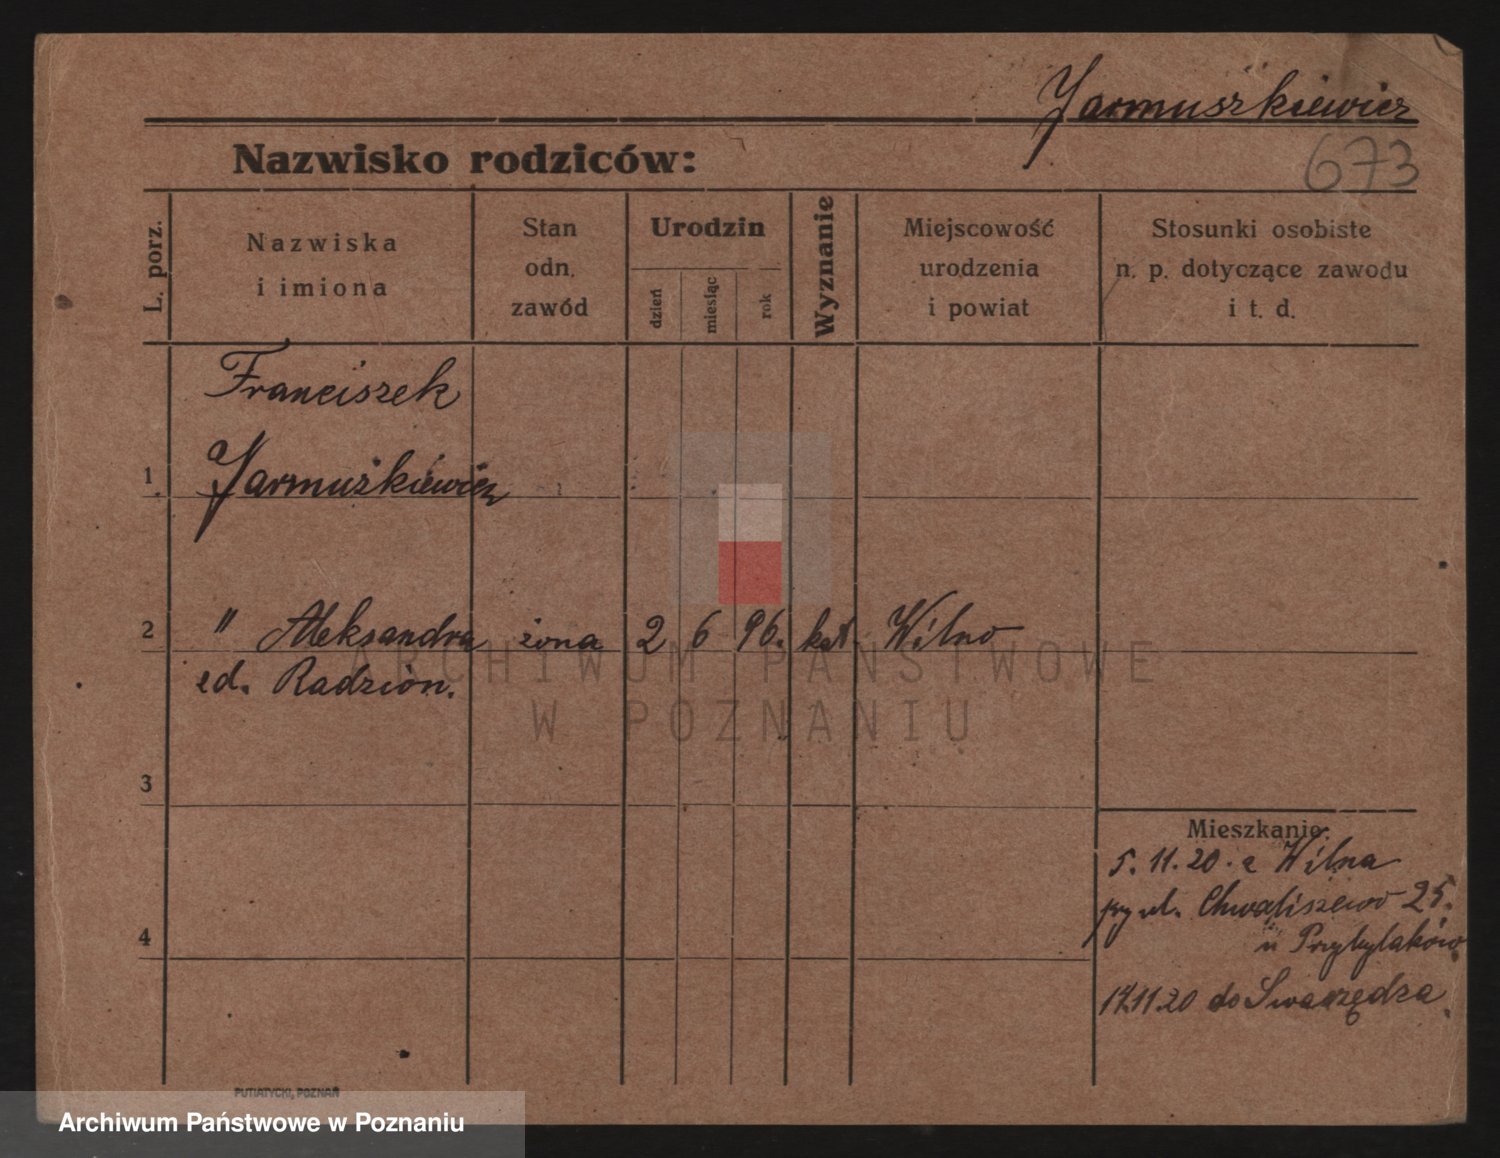 Jarmuszkiewicz
Nazwisko rodziców:
673
L. porz.
Nazwiska
i imiona
Stan
odn.
zawód
Urodzin
dzień
miesiąc
rok
Wyznanie
Miejscowość
urodzenia
i powiat
Stosunki osobiste
n. p. dotyczące zawodu
i t. d.
Franciszek
1 Jarmuszkiewicz
2 " Aleksandra żona 2 6 96. kat. Wilno
Radzion.
ARCHIWUM PAŃSTWOWE
W POZNANIU
3
Mieszkanie:
5. 11. 20. z Wilna
przy ul. Chwaliszewo 25.
4
u Przybylaków.
17.11.20 do Swarzędza.
PUTIATYCKI, POZNAŃ
Archiwum Państwowe w Poznaniu